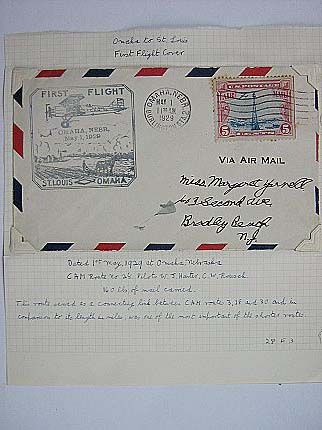 Omaha to St. Louis
First Flight Cover
FIRST FLIGHT
OMAHA, NEBR.
May 1, 1929
ST. LOUIS OMAHA
OMAHA, NEBR.
MAY 1
1929
U.S. POSTAGE
AIR MAIL
5 5
VIA AIR MAIL
Miss Margaret
413 Second Ave
Bradley Beach
N.J.
Dated 1st May, 1929 at Omaha, Nebraska
CAM Route No 28. Pilots W. J. Hunter, C. W.
160 lbs of mail carried.
This route served as a connecting link between CAM routes 3, 18 and 30 and in
comparison to its length in miles, was one of the most important of the shorter routes.
28 F 3